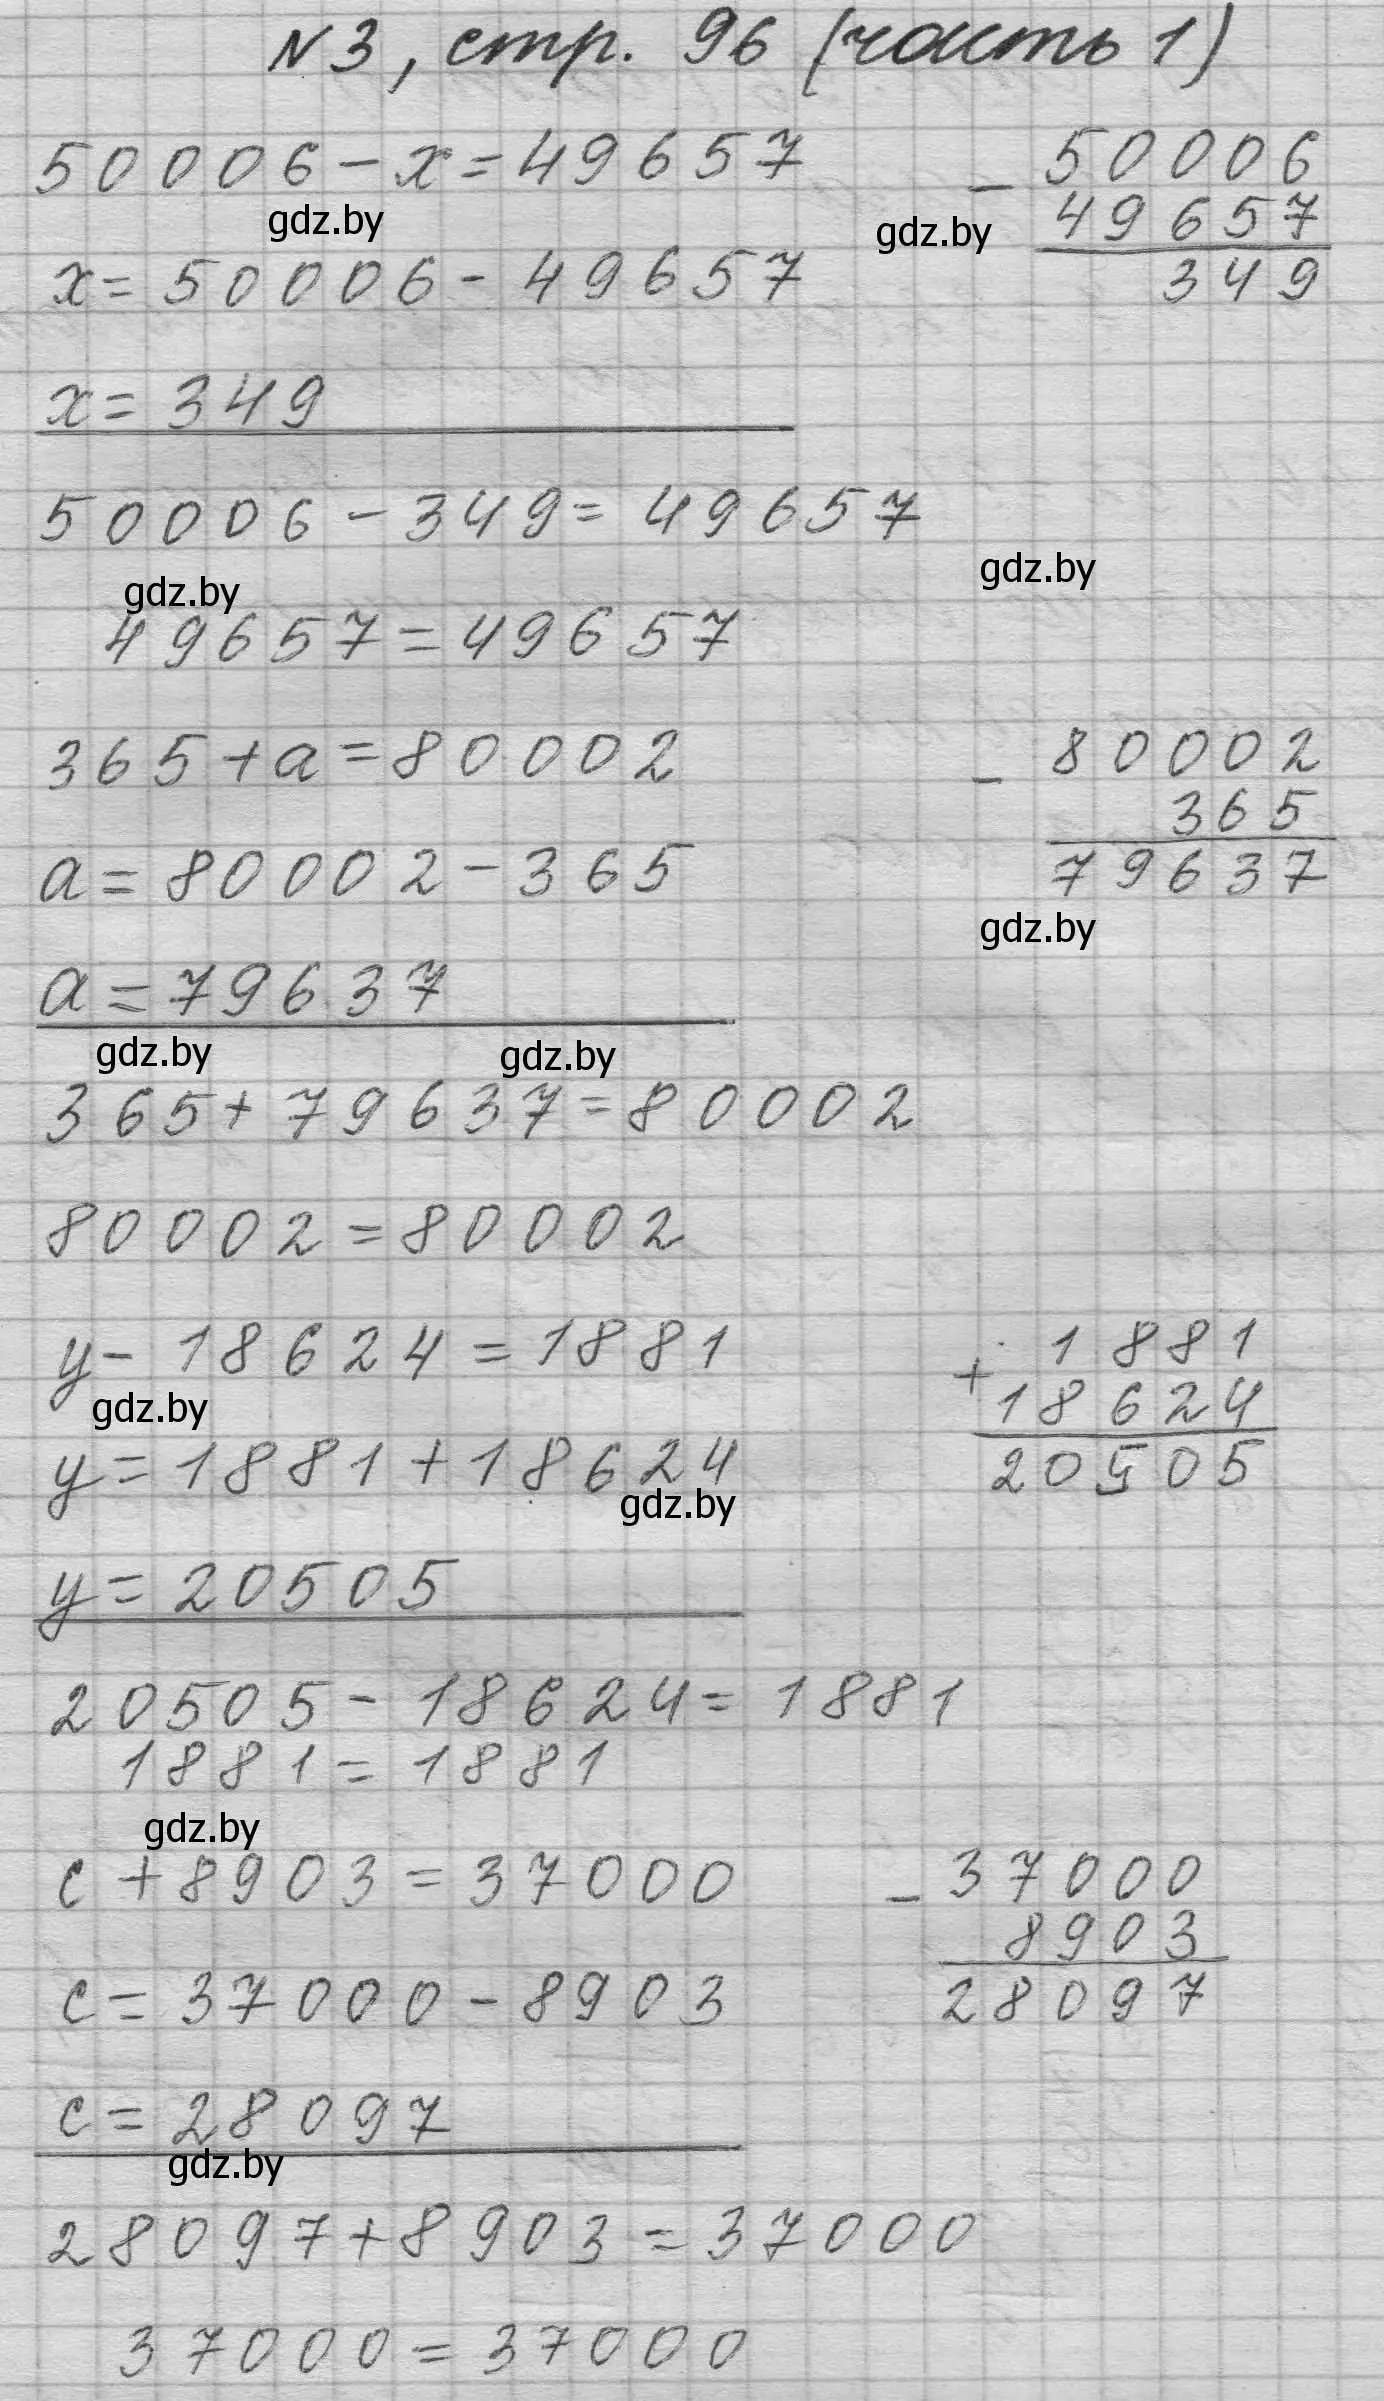 N3, стр. 96 (часть 1)
50006 - x = 49657
- 50006
gdz.by
gdz.by
49657
x = 50006 - 49657
349
x = 349
50006 - 349 = 49657
gdz.by
gdz.by
49657 = 49657
365 + a = 80002
- 80002
365
a = 80002 - 365
79637
gdz.by
a = 79637
gdz.by
gdz.by
365 + 79637 = 80002
80002 = 80002
y - 18624 = 1881
+ 1881
gdz.by
18624
y = 1881 + 18624
20505
gdz.by
y = 20505
20505 - 18624 = 1881
1881 = 1881
gdz.by
c + 8903 = 37000
- 37000
8903
c = 37000 - 8903
28097
c = 28097
gdz.by
28097 + 8903 = 37000
37000 = 37000